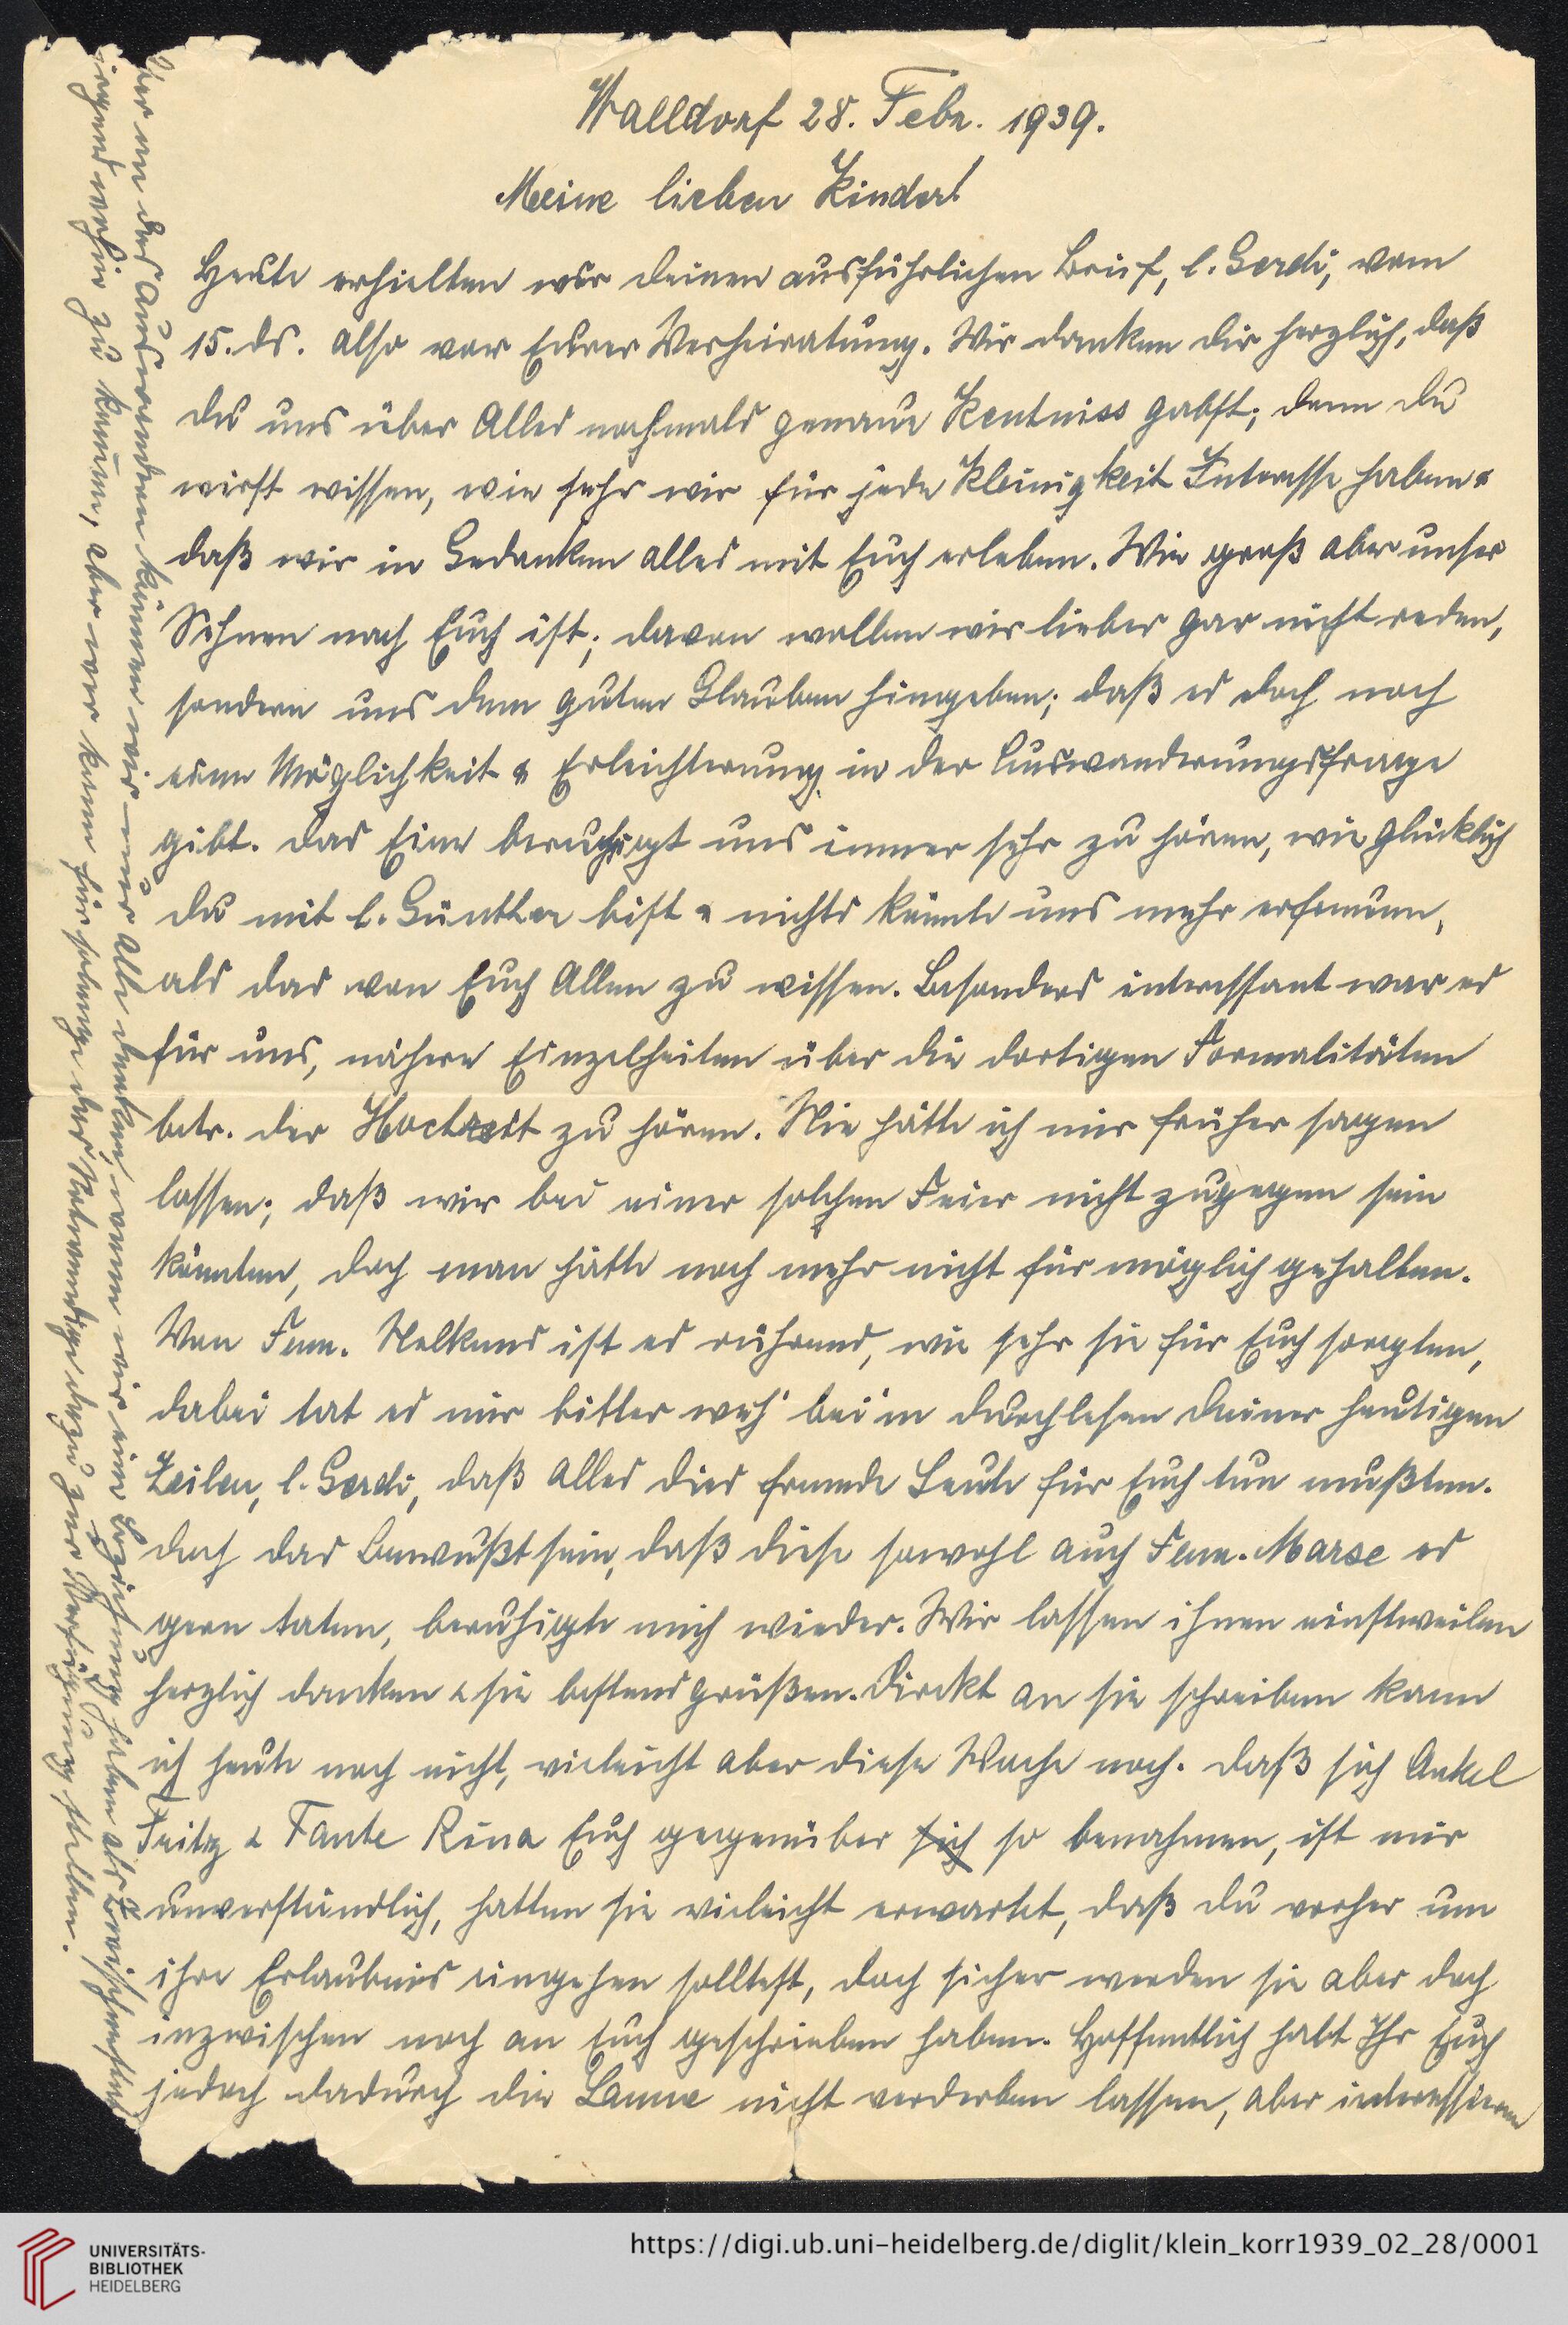 Walldorf 28. Febr. 1939.
Meine lieben Kinder!
Heute erhielten wir deinen ausführlichen Brief, l. Gerdi, vom
15. ds. also vor Eurer Verheiratung. Wir danken dir herzlich, daß
du uns über Alles nochmals genaue Kentniss gabst; denn du
wirst wissen, wie sehr wir für jede Kleinigkeit Interesse haben &
daß wir in Gedanken alles mit Euch erleben. Wie groß aber unser
Sehnen nach Euch ist; davon wollen wir lieber gar nicht reden,
sondern uns dem guten Glauben hingeben; daß es doch noch
eine Möglichkeit & Erleichterung in der Auswanderungsfrage
gibt. Das Eine beruhigt uns immer sehr zu hören, wie glücklich
du mit l. Günther bist & nichts könnte uns mehr erfreuen,
als das von Euch Allen zu wissen. Besonders interessant war es
für uns, nähere Einzelheiten über die dortigen Formalitäten
betr. der Hochzeit zu hören. Nie hätte ich mir früher sagen
lassen; daß wir bei einer solchen Feier nicht zugegen sein
könnten, doch man hätte noch mehr nicht für möglich gehalten.
Von Fam. Nelkens ist es rührend, wie sehr sie für Euch sorgten,
dabei tat es mir bitter weh beim durchlesen deiner heutigen
Zeilen, l. Gerdi, daß alles dies fremde Leute für Euch tun mußten.
doch das Bewußtsein, daß diese sowohl auch Fam. Marse es
gern taten, beruhigte mich wieder. Wir lassen ihnen einstweilen
herzlich danken & sie bestens grüßen. Direkt an sie schreiben kann
ich heute noch nicht, vieleicht aber diese Woche noch. Daß sich Onkel
Fritz & Tante Rina Euch gegenüber sich so benahmen, ist mir
unverständlich, hatten sie vieleicht erwartet, daß du vorher um
ihre Erlaubnis eingehen solltest, doch sicher werden sie aber doch
inzwischen noch an Euch geschrieben haben. Hoffentlich habt Ihr Euch
jedoch dadurch die Laune nicht verderben lassen, aber interessieren
der an das Auswandern können wir nur alle denken, wenn wir eine Beziehung haben als Zwischen
irgend wohin zu kommen, aber wer kann für solange das Notwendige dazu zur Verfügung stellen.
UNIVERSITÄTS-
BIBLIOTHEK
HEIDELBERG
https://digi.ub.uni-heidelberg.de/diglit/klein_korr1939_02_28/0001